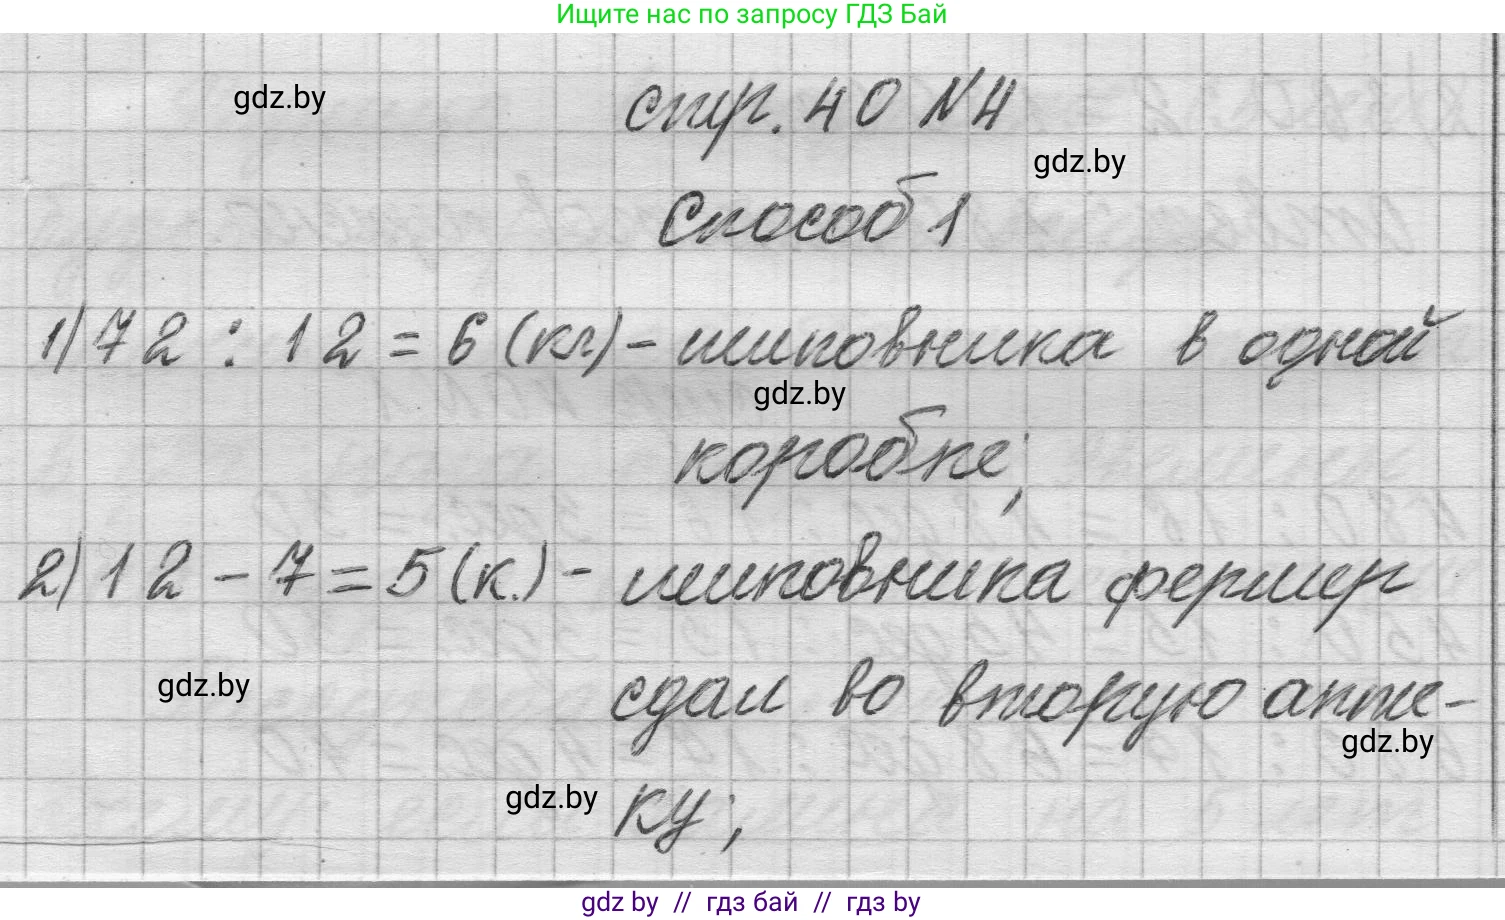 Ищите нас по запросу ГДЗ Бай
gdz.by
стр. 40 №4
gdz.by
Способ 1
1) 72 : 12 = 6 (кг) - шиповника в одной
gdz.by
коробке;
2) 12 - 7 = 5 (к.) - шиповника фермер
gdz.by
сдал во вторую апте-
gdz.by
gdz.by
ку;
gdz.by // гдз бай // гдз by